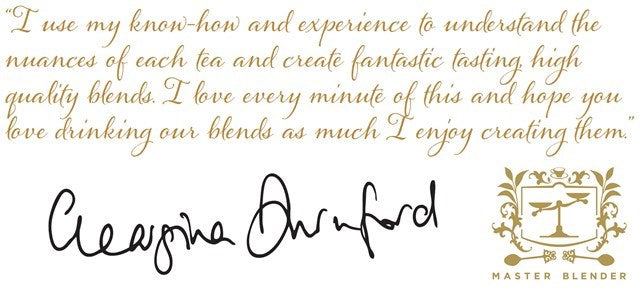 “I use my know-how and experience to understand the
nuances of each tea and create fantastic tasting, high
quality blends. I love every minute of this and hope you
love drinking our blends as much I enjoy creating them.”
Georgina Durnford
MASTER BLENDER